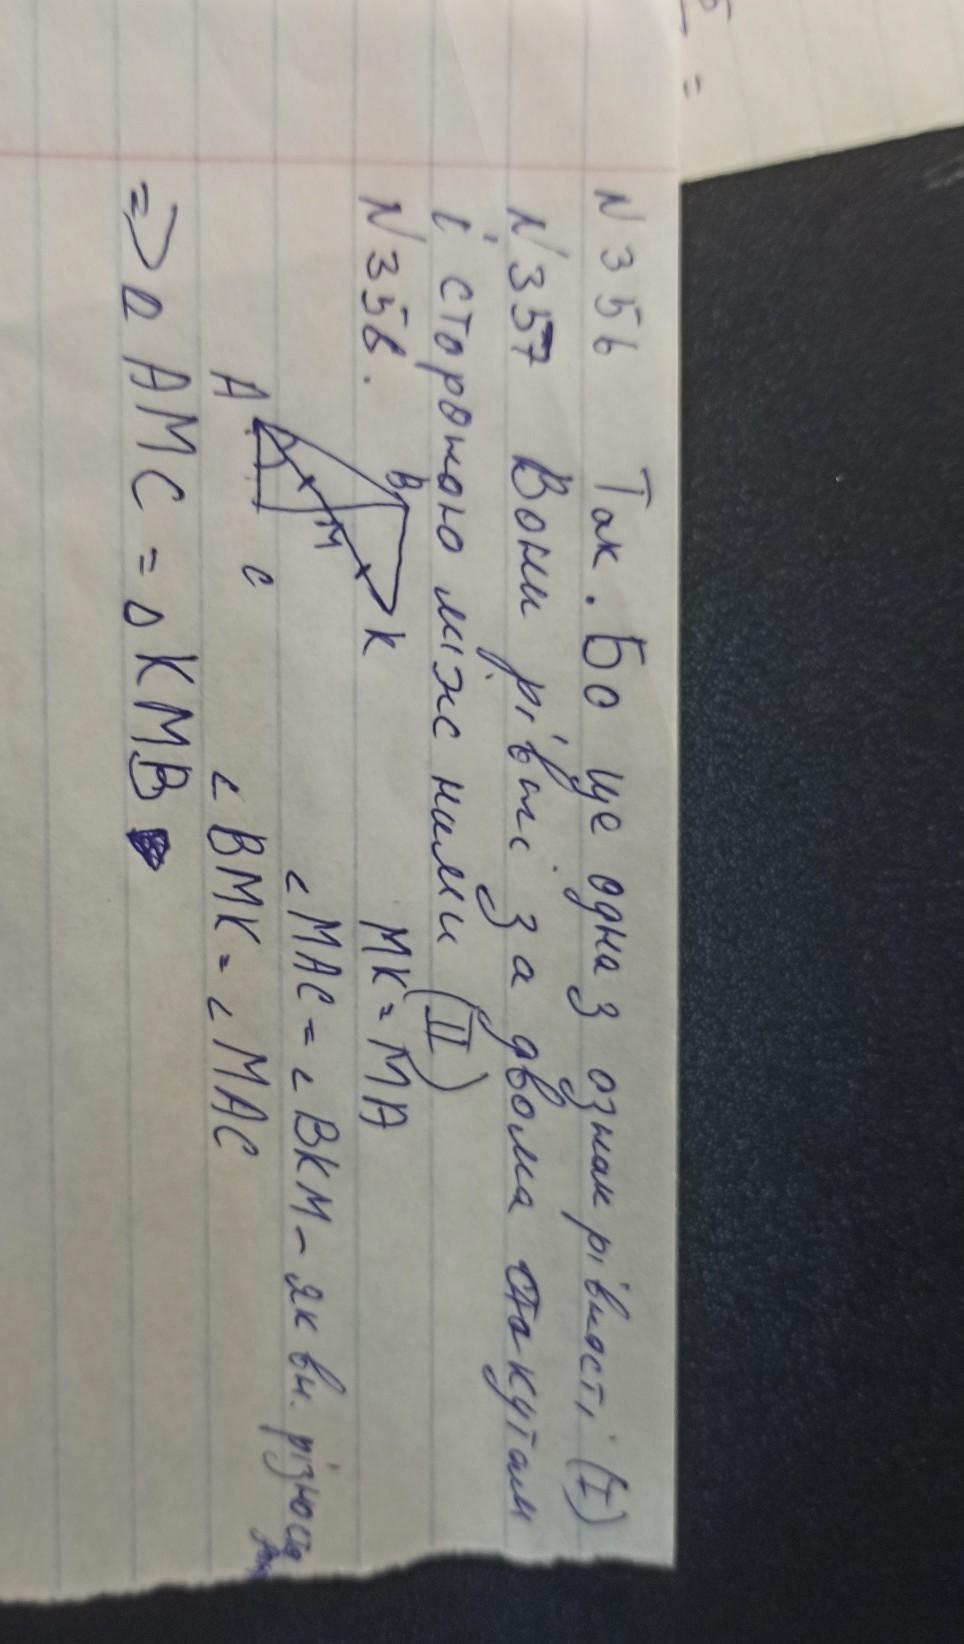 N 356 Так. Бо ще одна з ознак рівності (I)
N 357 Вони рівні за двома кутам
і стороною між ними (II)
N 358.
B
K
M
A
C
MK = MA
∠ MAC = ∠ BKM - як вн. різност
∠ BMK = ∠ MAC
=> Δ AMC = Δ KMB
=